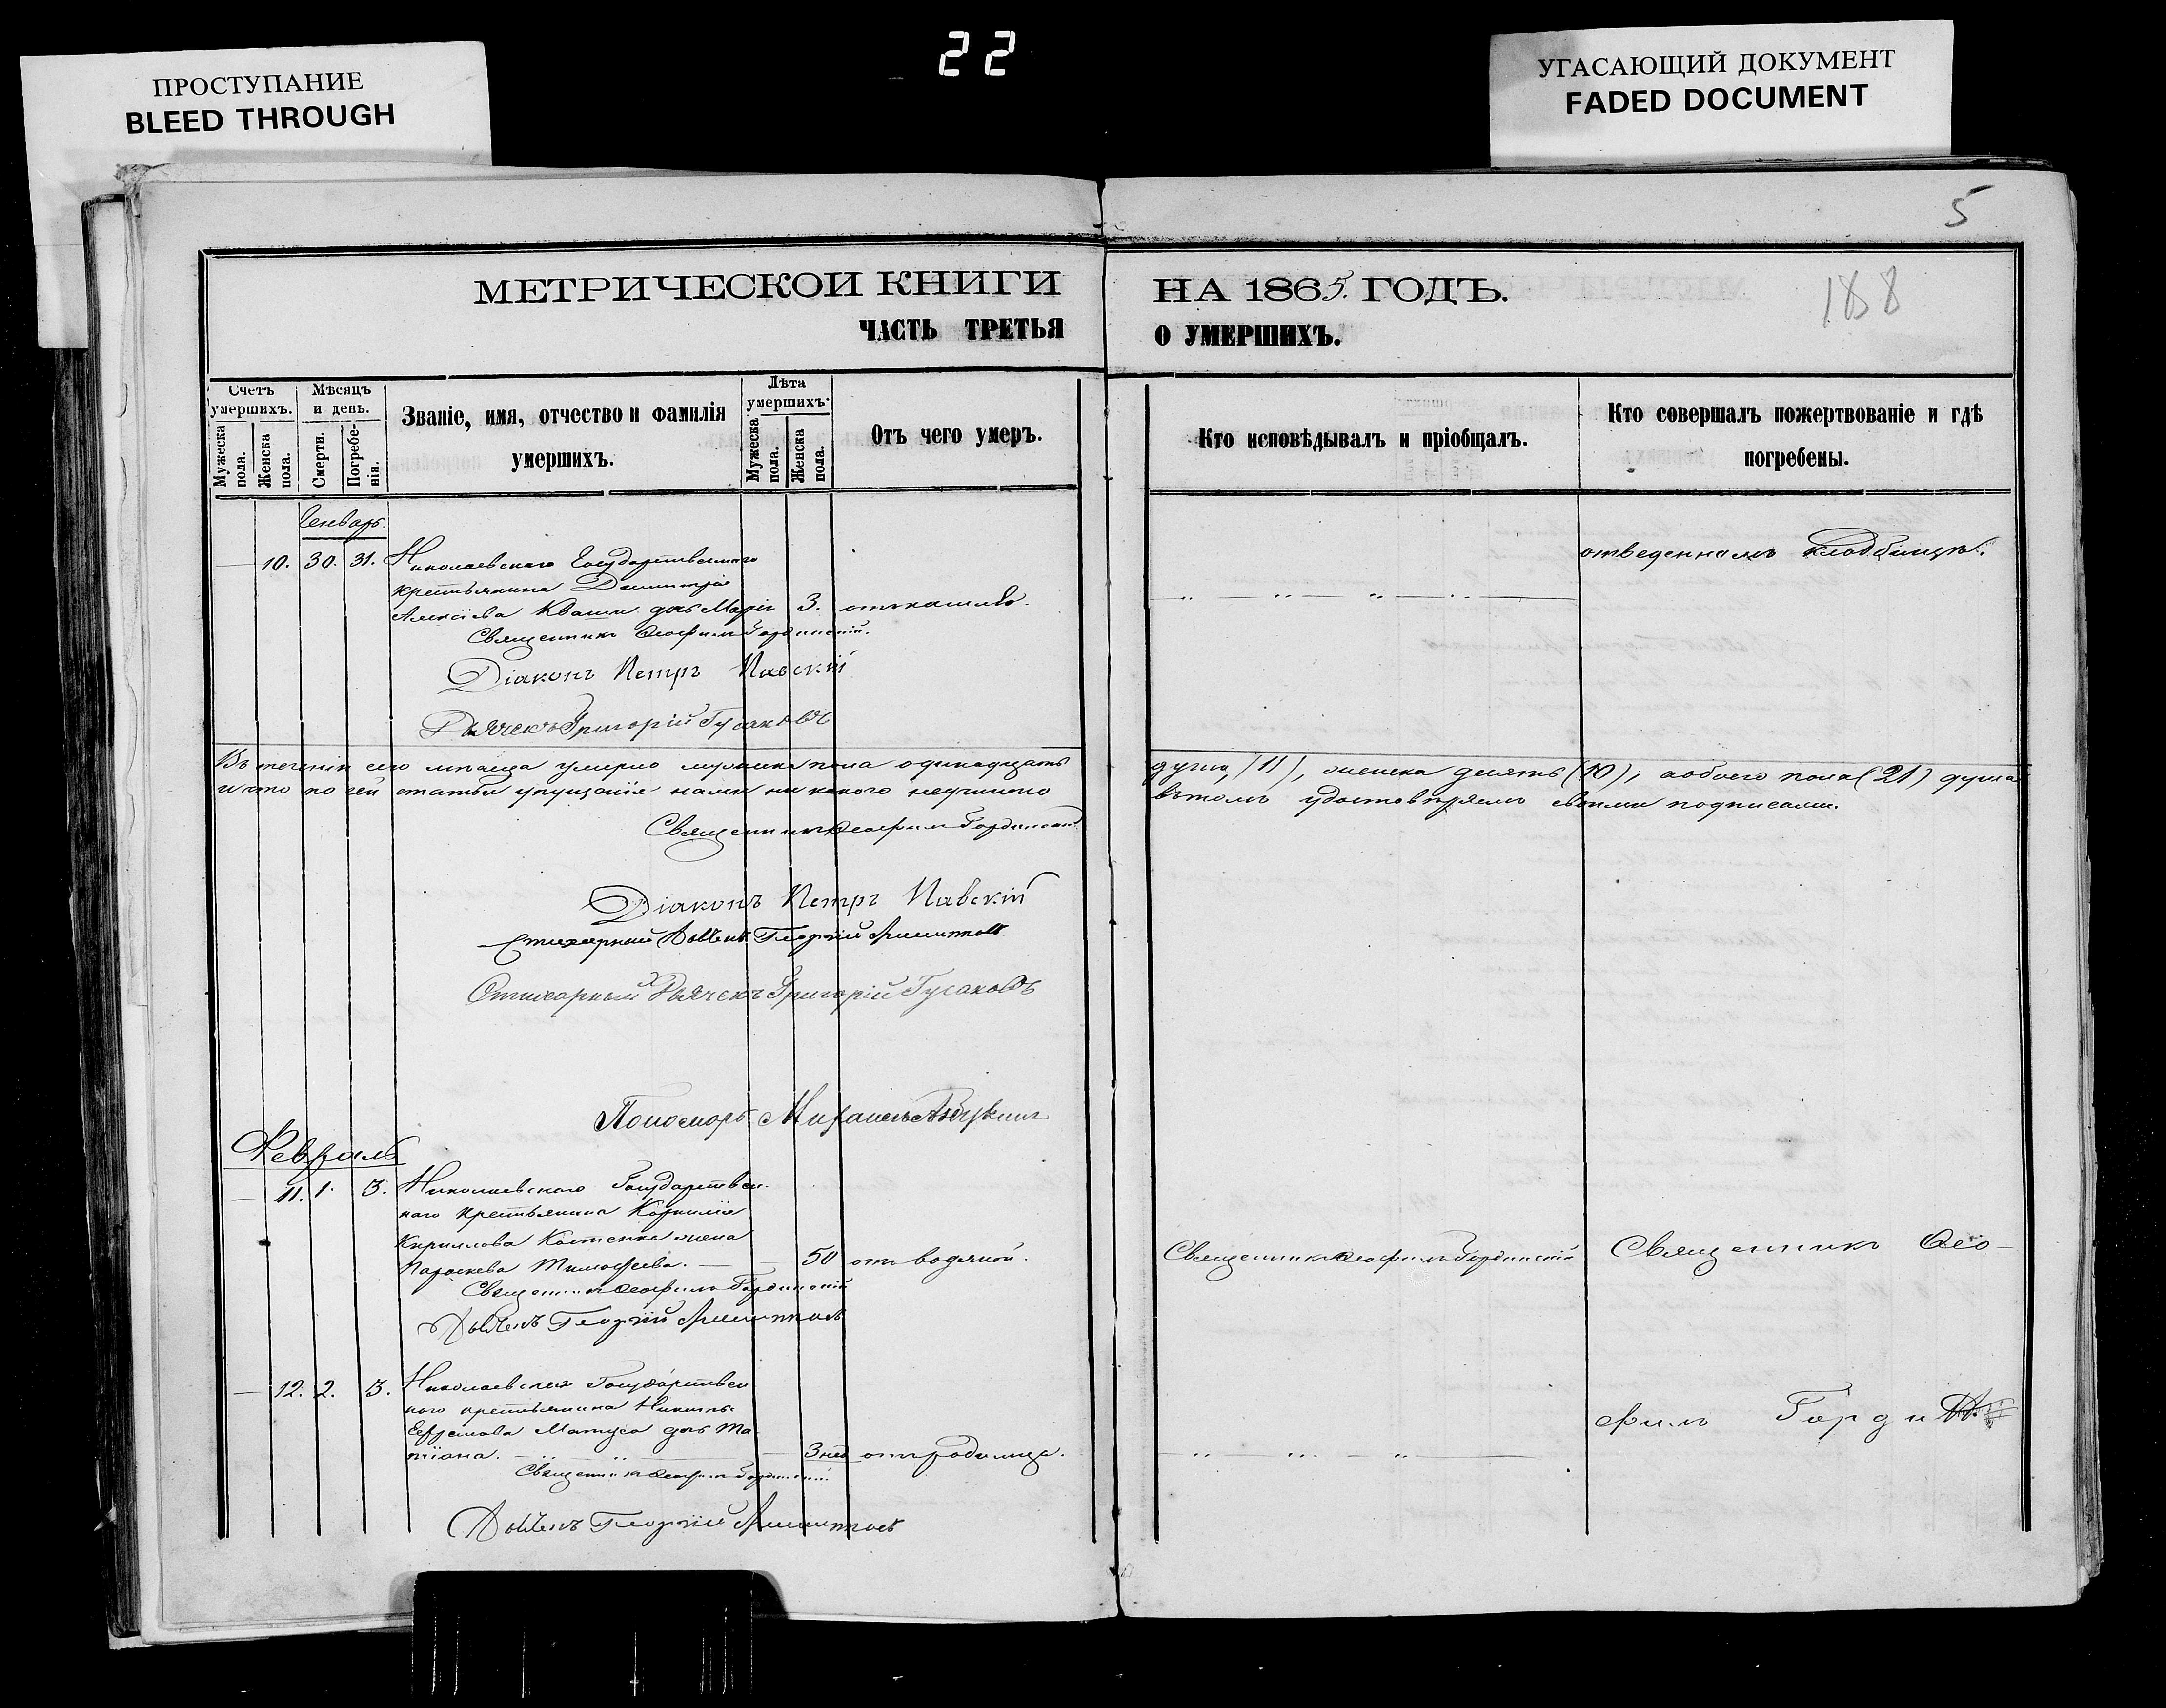 22
ПРОСТУПАНИЕ
BLEED THROUGH
УГАСАЮЩИЙ ДОКУМЕНТ
FADED DOCUMENT
5
188
МЕТРИЧЕСКОЙ КНИГИ НА 1865. ГОДЪ.
ЧАСТЬ ТРЕТЬЯ О УМЕРШИХЪ.
Счетъ умершихъ.
Мужеска пола.
Женска пола.
Мѣсяцъ и день.
Смерти.
Погребенія.
Званіе, имя, отчество и фамилія умершихъ.
Лѣта умершихъ.
Мужеска пола.
Женска пола.
Отъ чего умеръ.
Кто исповѣдывалъ и пріобщалъ.
Кто совершалъ пожертвованіе и гдѣ погребены.
Генварь.
10. 30. 31. Николаевскаго Государственнаго
крестьянина Димитрія
Алексіева Кваши дочь Марія 3. отъ кашлю.
отведенномъ кладбищѣ.
Священникъ Ѳеофилъ Гординскій.
Діаконъ Петръ Павскій
Дьячекъ Григорій Гусаковъ
Въ теченіи сего мѣсяца умерло мужеска пола одинадцать душъ, (11), женска десять (10), а обоего пола (21) душа
и что по сей статьи упущенія нами никакого неучинено въ томъ удостовѣряемъ своими подписами.
Священникъ Ѳеофилъ Гординскій
Діаконъ Петръ Павскій
Стихарный Дьячекъ Георгій
Стихарный Дьячекъ Григорій Гусаковъ
Пономарь Михаилъ
Февраль
11. 1. 3. Николаевскаго Государствен
наго крестьянина Корнилія
Кириллова Костенка жена
Параскева Тимофѣева. 50 отъ водяной.
Священникъ Ѳеофилъ Гординскій
Священникъ Ѳео-
Священникъ Ѳеофилъ Гординскій
Дьячекъ Георгій
12. 2. 3. Николаевскаго Государствен
наго крестьянина Никиты
Ефремова Матуса дочь Та
тіана. 3 нед отъ родимца.
филъ Горди
Священникъ Ѳеофилъ Гординскій
Дьячекъ Георгій